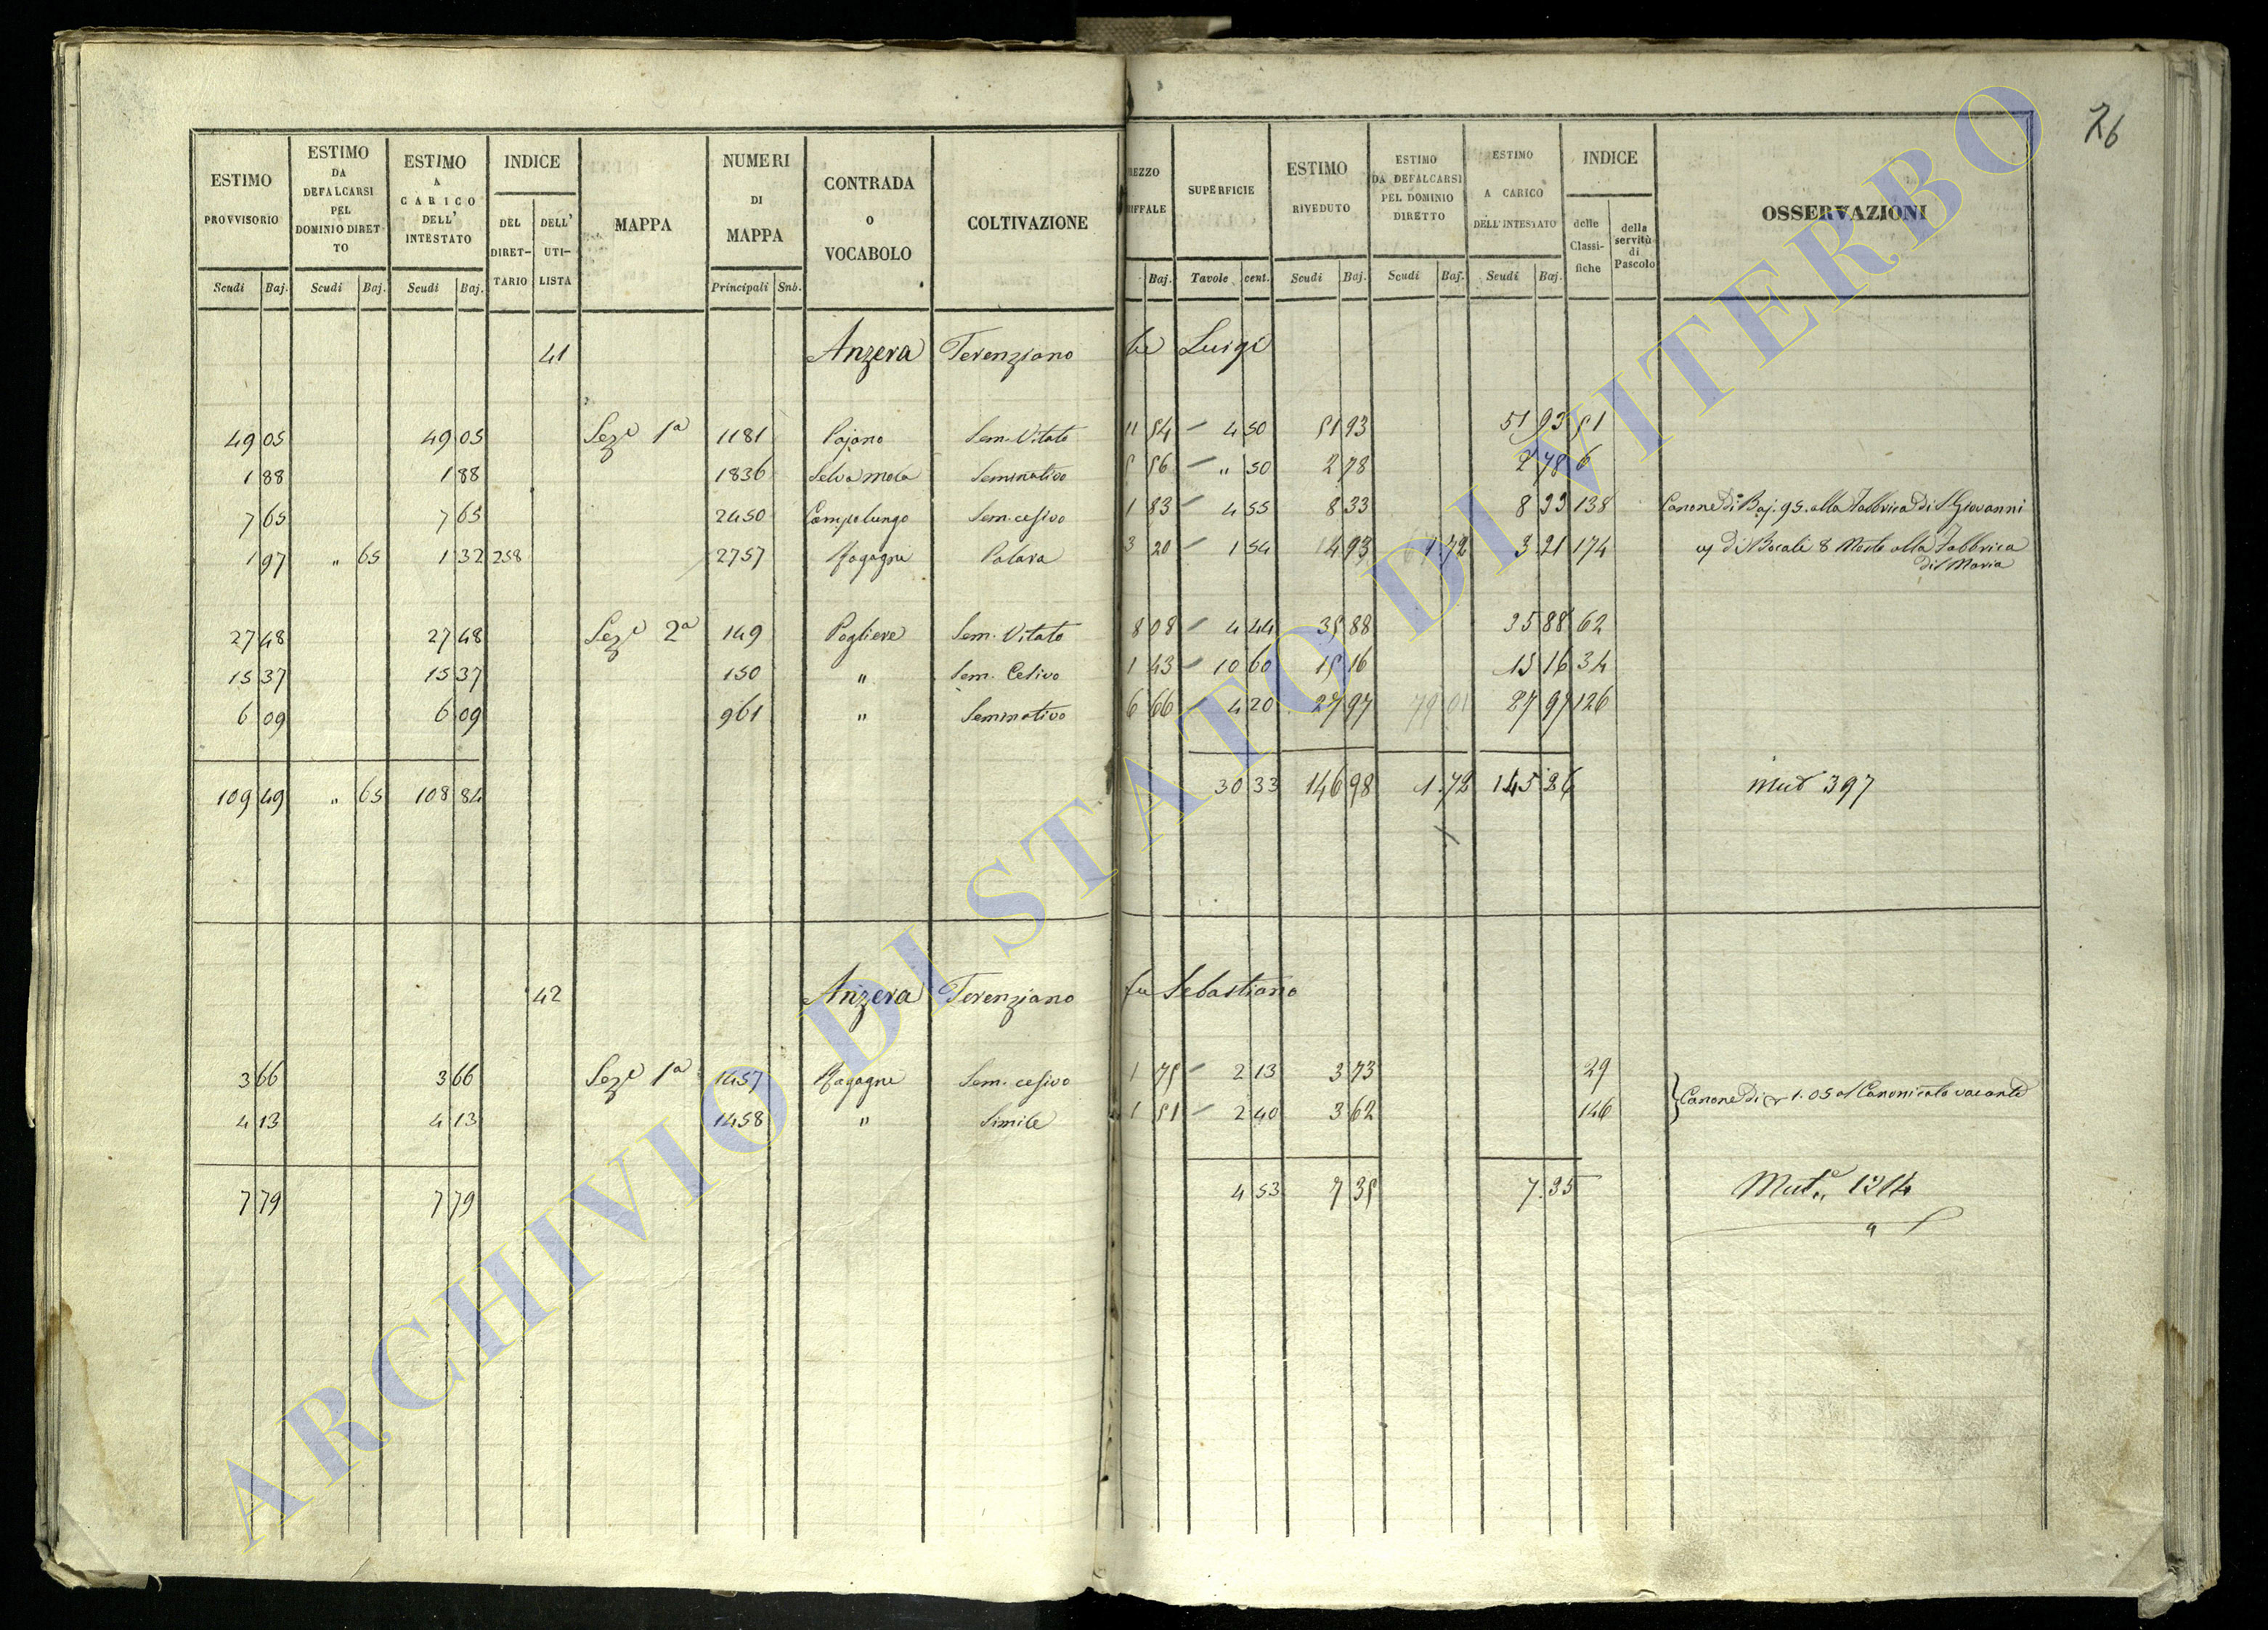 26
ESTIMO PROVVISORIO | ESTIMO DA DEFALCARSI PEL DOMINIO DIRETTO | ESTIMO A CARICO DELL' INTESTATO | INDICE | MAPPA | NUMERI DI MAPPA | CONTRADA O VOCABOLO | COLTIVAZIONE | REZZO RIFFALE | SUPERFICIE | ESTIMO RIVEDUTO | ESTIMO DA DEFALCARSI PEL DOMINIO DIRETTO | ESTIMO A CARICO DELL'INTESTATO | INDICE | OSSERVAZIONI
DEL DIRETTARIO | DELL' UTILISTA | delle Classifiche | della servitù di Pascolo
Scudi | Baj. | Scudi | Baj. | Scudi | Baj. | Principali | Snb. | Baj. | Tavole | cent. | Scudi | Baj. | Scudi | Baj. | Scudi | Baj.
41 Anzera Terenziano di Luigi
49 05 | 49 05 | Sez.e 1a | 1181 | Pojano | Sem. Vitato | 11 54 | 4 50 | 51 93 | 51 93 | 51
1 88 | 1 88 | 1836 | Selva mola | Seminativo | 5 56 | " 50 | 2 78 | 2 78 | 6
7 65 | 7 65 | 2450 | Campolungo | Sem. cesivo | 1 83 | 4 55 | 8 33 | 8 33 | 138 | Canone di Baj. 95. alla Fabbrica di S. Giovanni
1 97 | " 65 | 1 32 | 258 | 2757 | Ragagne | Palara | 3 20 | 1 54 | 4 93 | 1.72 | 3.21 | 174 | di Bocali 8 Mosto alla Fabbrica
di S Maria
27 48 | 27 48 | Sez.e 2a | 149 | Pogliere | Sem. Vitato | 8 08 | 4 44 | 35 88 | 35 88 | 62
15 37 | 15 37 | 150 | " | Sem. Cesivo | 1 43 | 10 60 | 15 16 | 15 16 | 34
6 09 | 6 09 | 961 | " | Seminativo | 6 66 | 4 20 | 27 97 | 27 97 | 126
109 49 | " 65 | 108 84 | 30 33 | 146 98 | 1.72 | 145 26 | mut 397
42 Anzera Terenziano fu Sebastiano
3 66 | 3 66 | Sez.e 1a | 1457 | Ragagne | Sem. cesivo | 1 75 | 2 13 | 3 73 | 29
Canone di 1.05 al Canonicato vacante
4 13 | 4 13 | 1458 | " | Simile | 1 51 | 2 40 | 3 62 | 146
7 79 | 7 79 | 4 53 | 7 35 | 7.35 | Mut.e 1314
ARCHIVIO DI STATO DI VITERBO